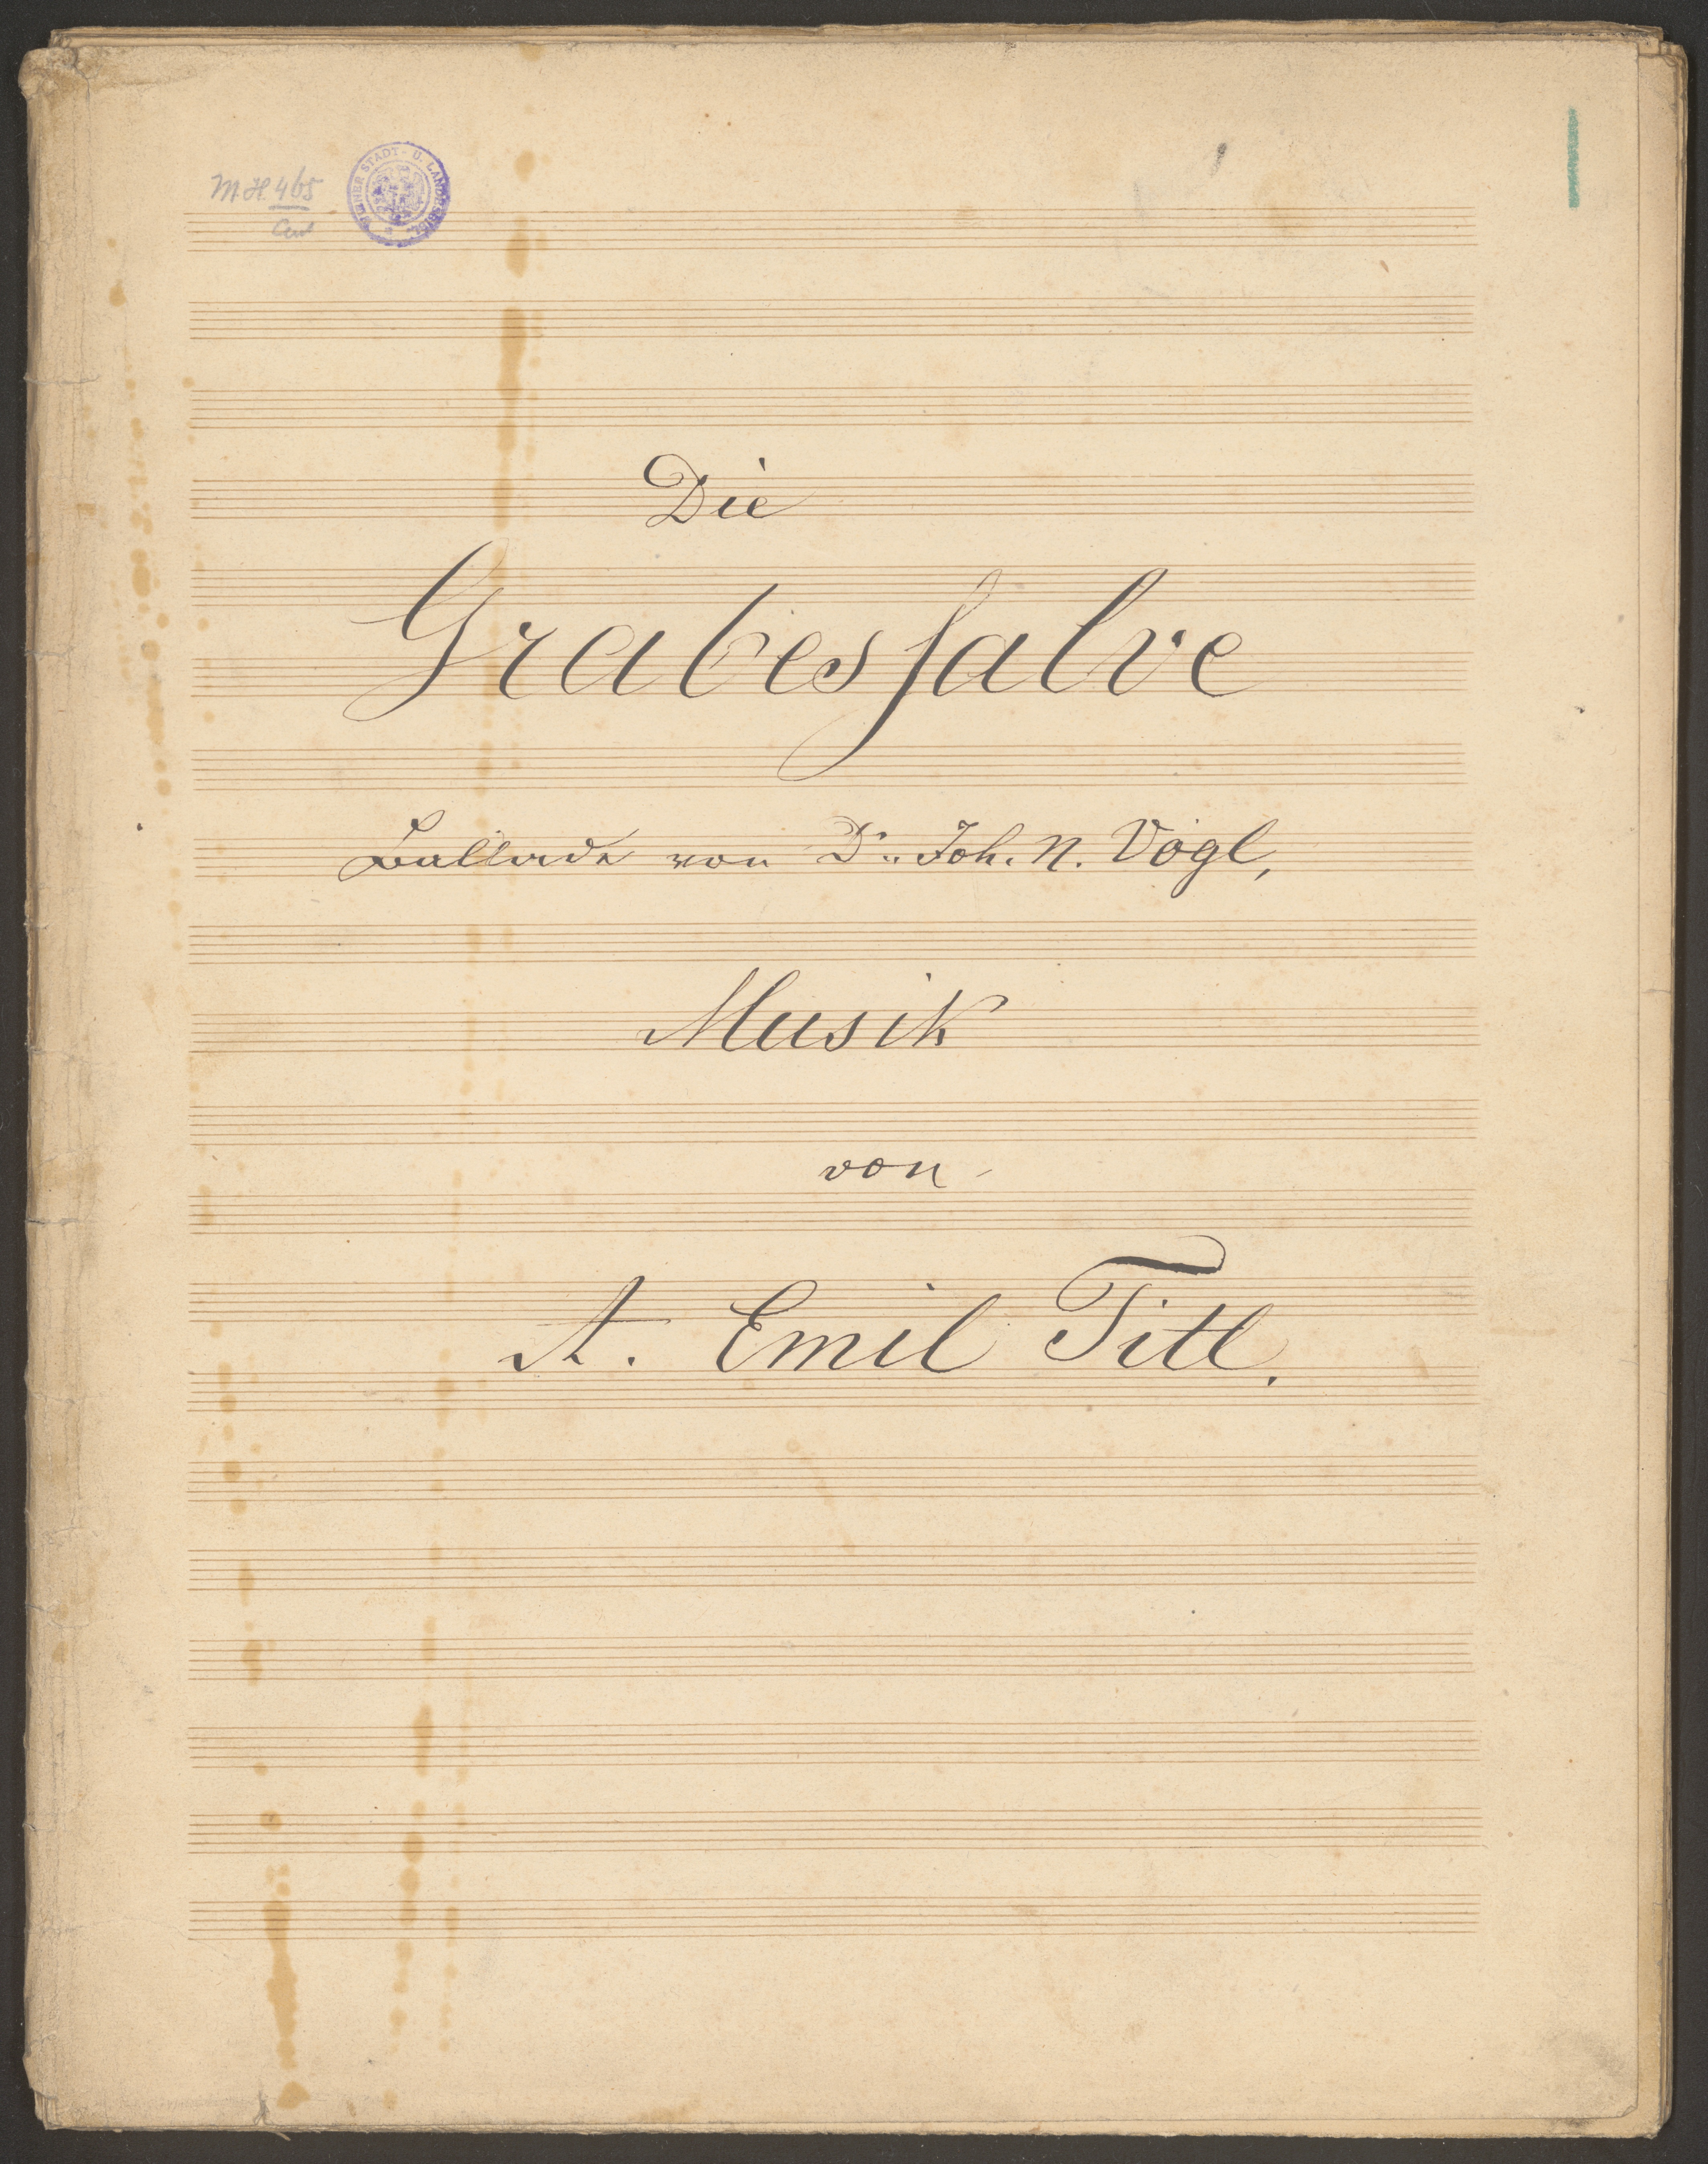 MH 465
WIENER STADT- U. LANDESBIBL.
Die
Grabessalve
Ballade von Dr. Joh. N. Vogl,
Musik
von
A. Emil Titl.